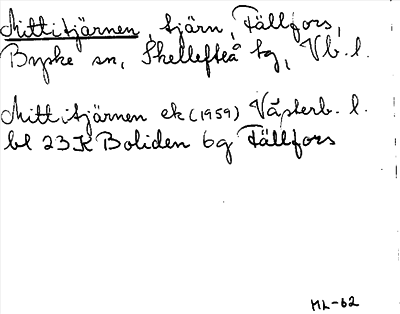 Mittitjärnen, tjärn, Fällfors,
Byske sn, Skellefteå tg, Vb. l.
Mittitjärnen ek (1959) Västerb. l.
bl 23K Boliden 6g Fällfors
ML-62